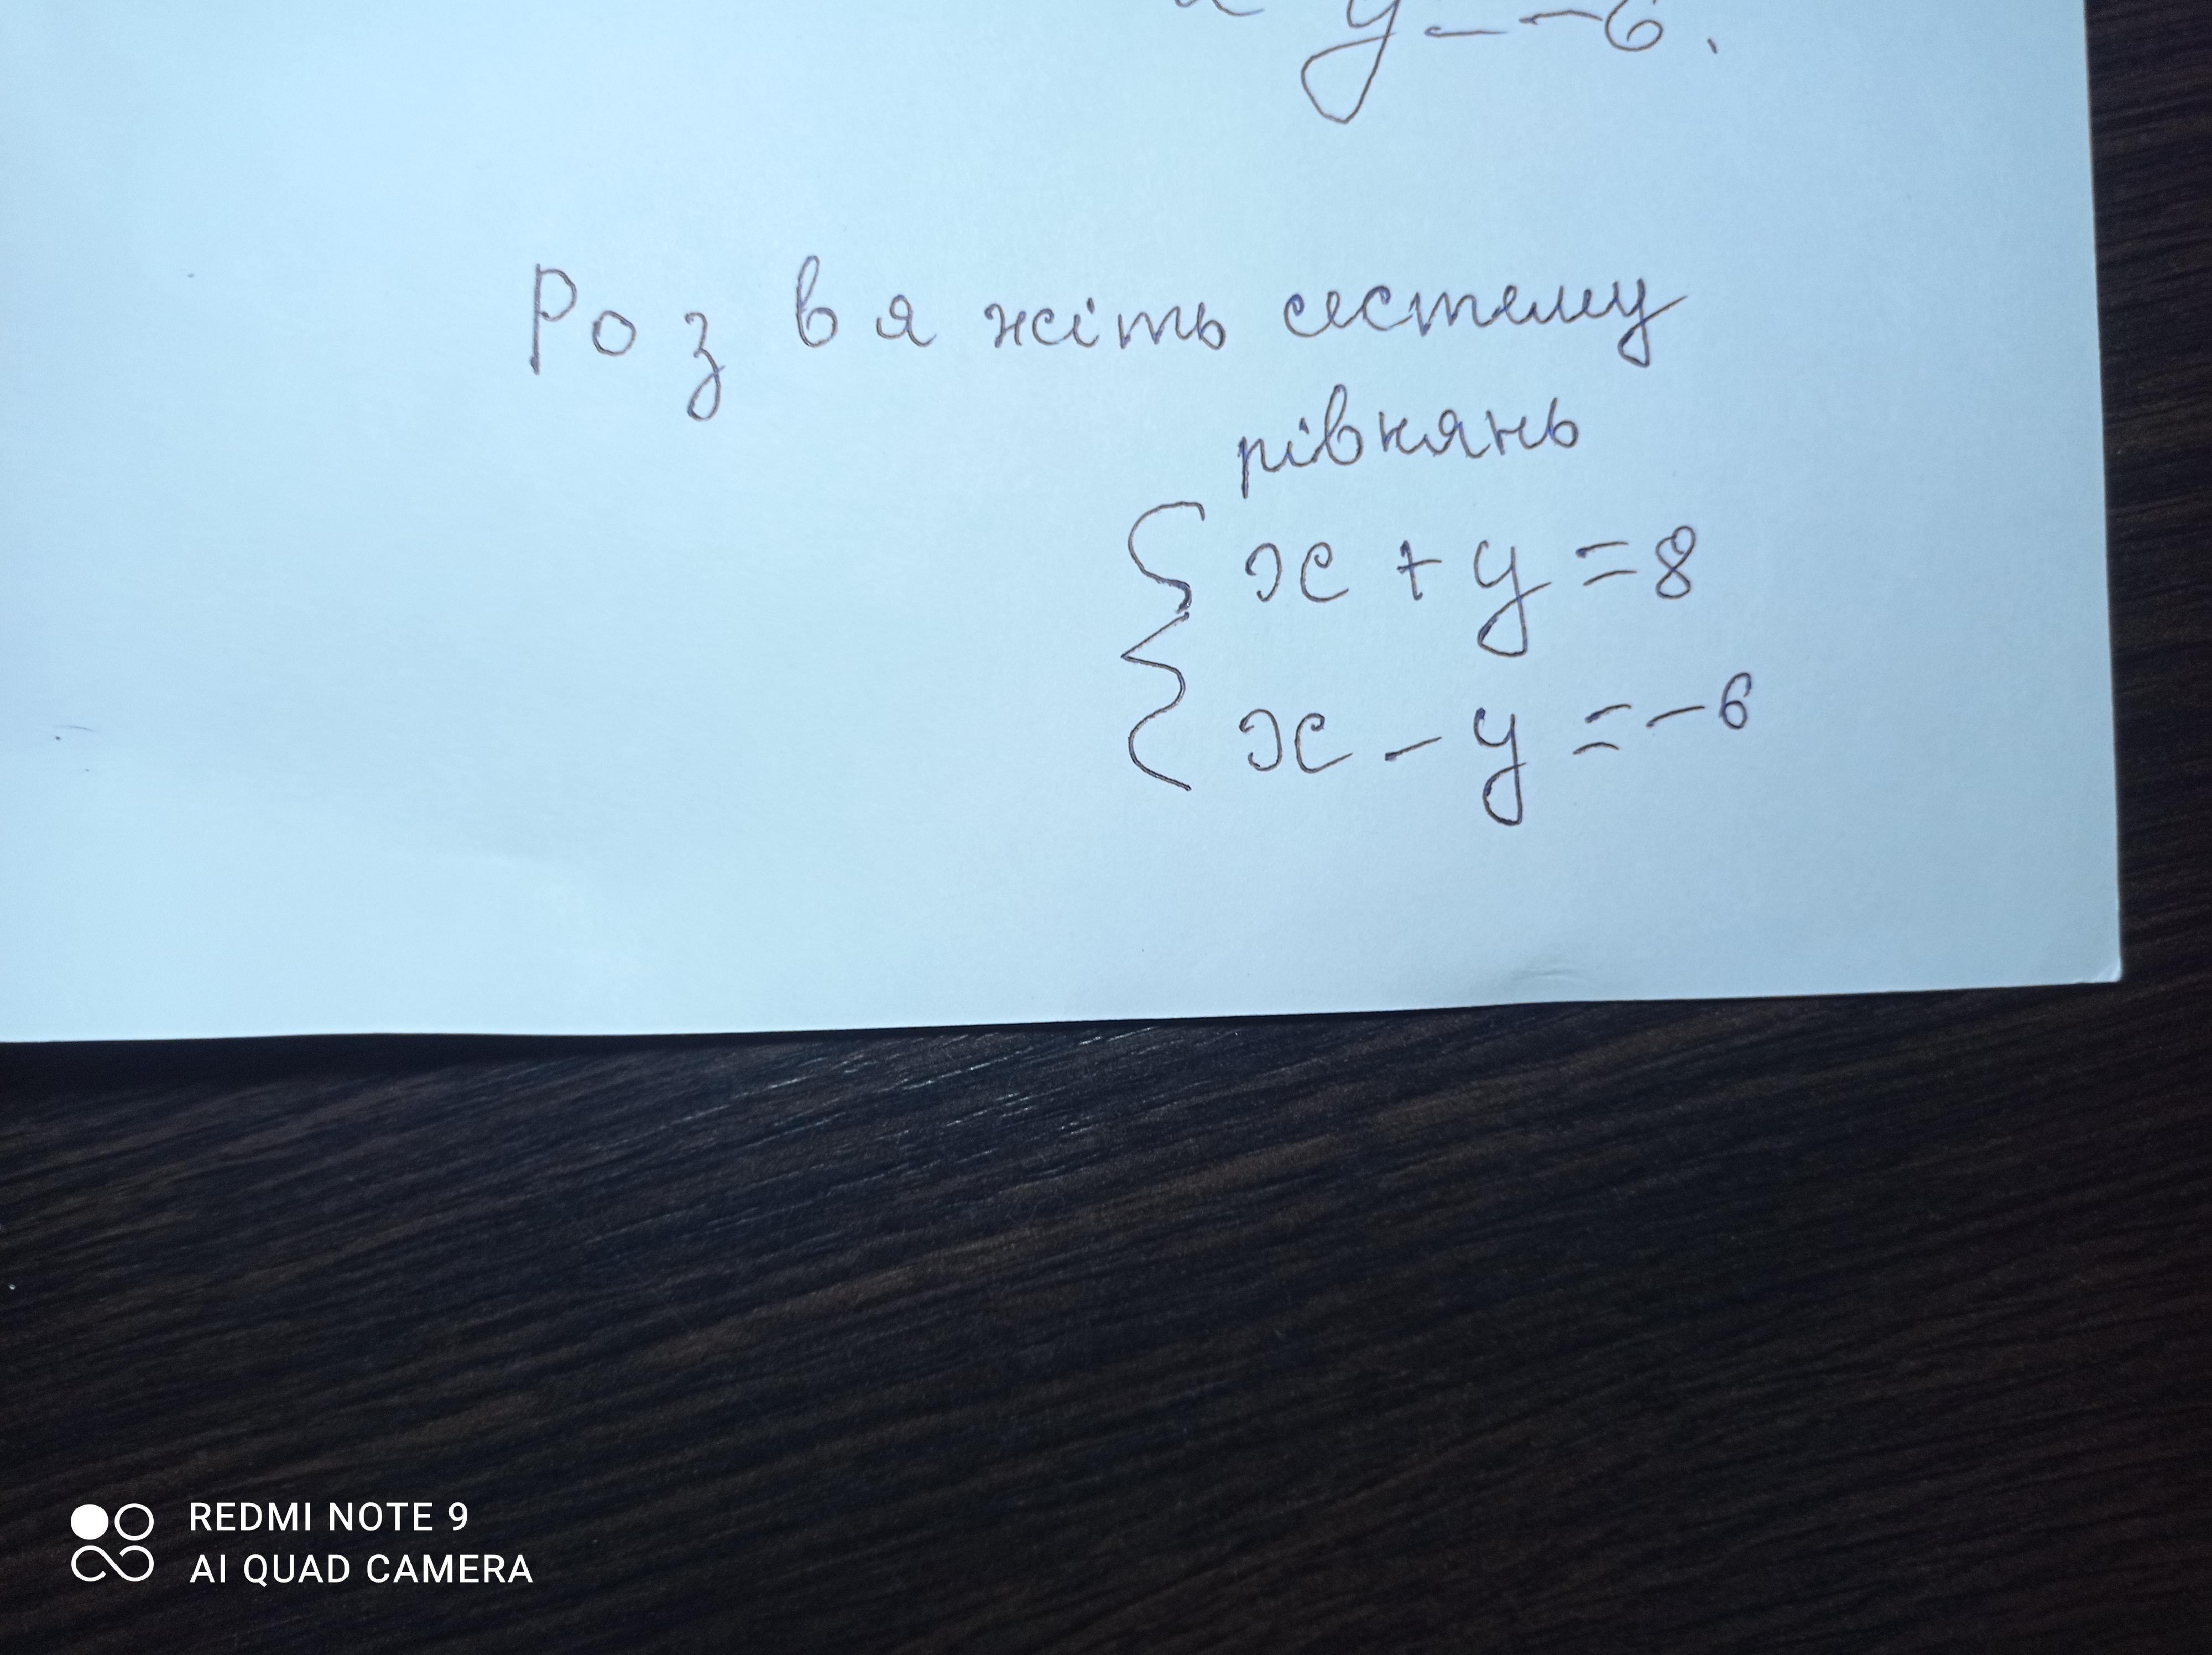 y = -6.
Розвяжіть систему
рівнянь
x + y = 8
x - y = -6
REDMI NOTE 9
AI QUAD CAMERA